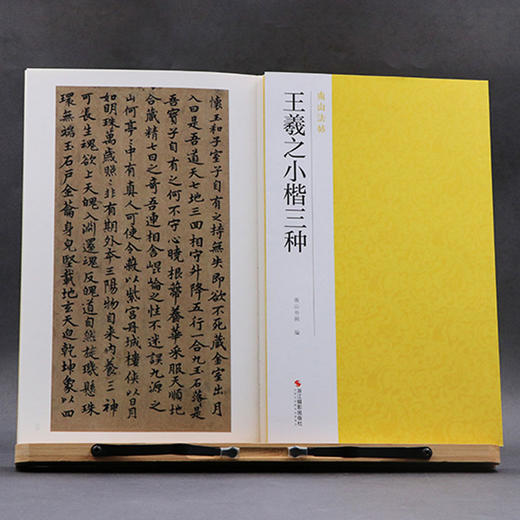 懷玉和子室子自有之持無失即欲不死藏金室出月
入日是吾道天七地三四相守升降五行一合九玉石落是
吾寶子自有之何不守心曉根蔕養華采服天順地
合藏精七日之奇吾連相合崐崘之性不迷誤九源之
山何亭亭中有真人可使令蔽以紫宮丹城樓侠以日月
如明珠萬歲照照非有期外本三陽物自来内養三神
可長生魂欲上天魄入淵還魂反魄道自然旋璣懸珠
環無端玉石戶金籥身兒堅載地玄天迫乾坤象以四
南山法帖
王羲之小楷三种
南山书画 编
浙江摄影出版社